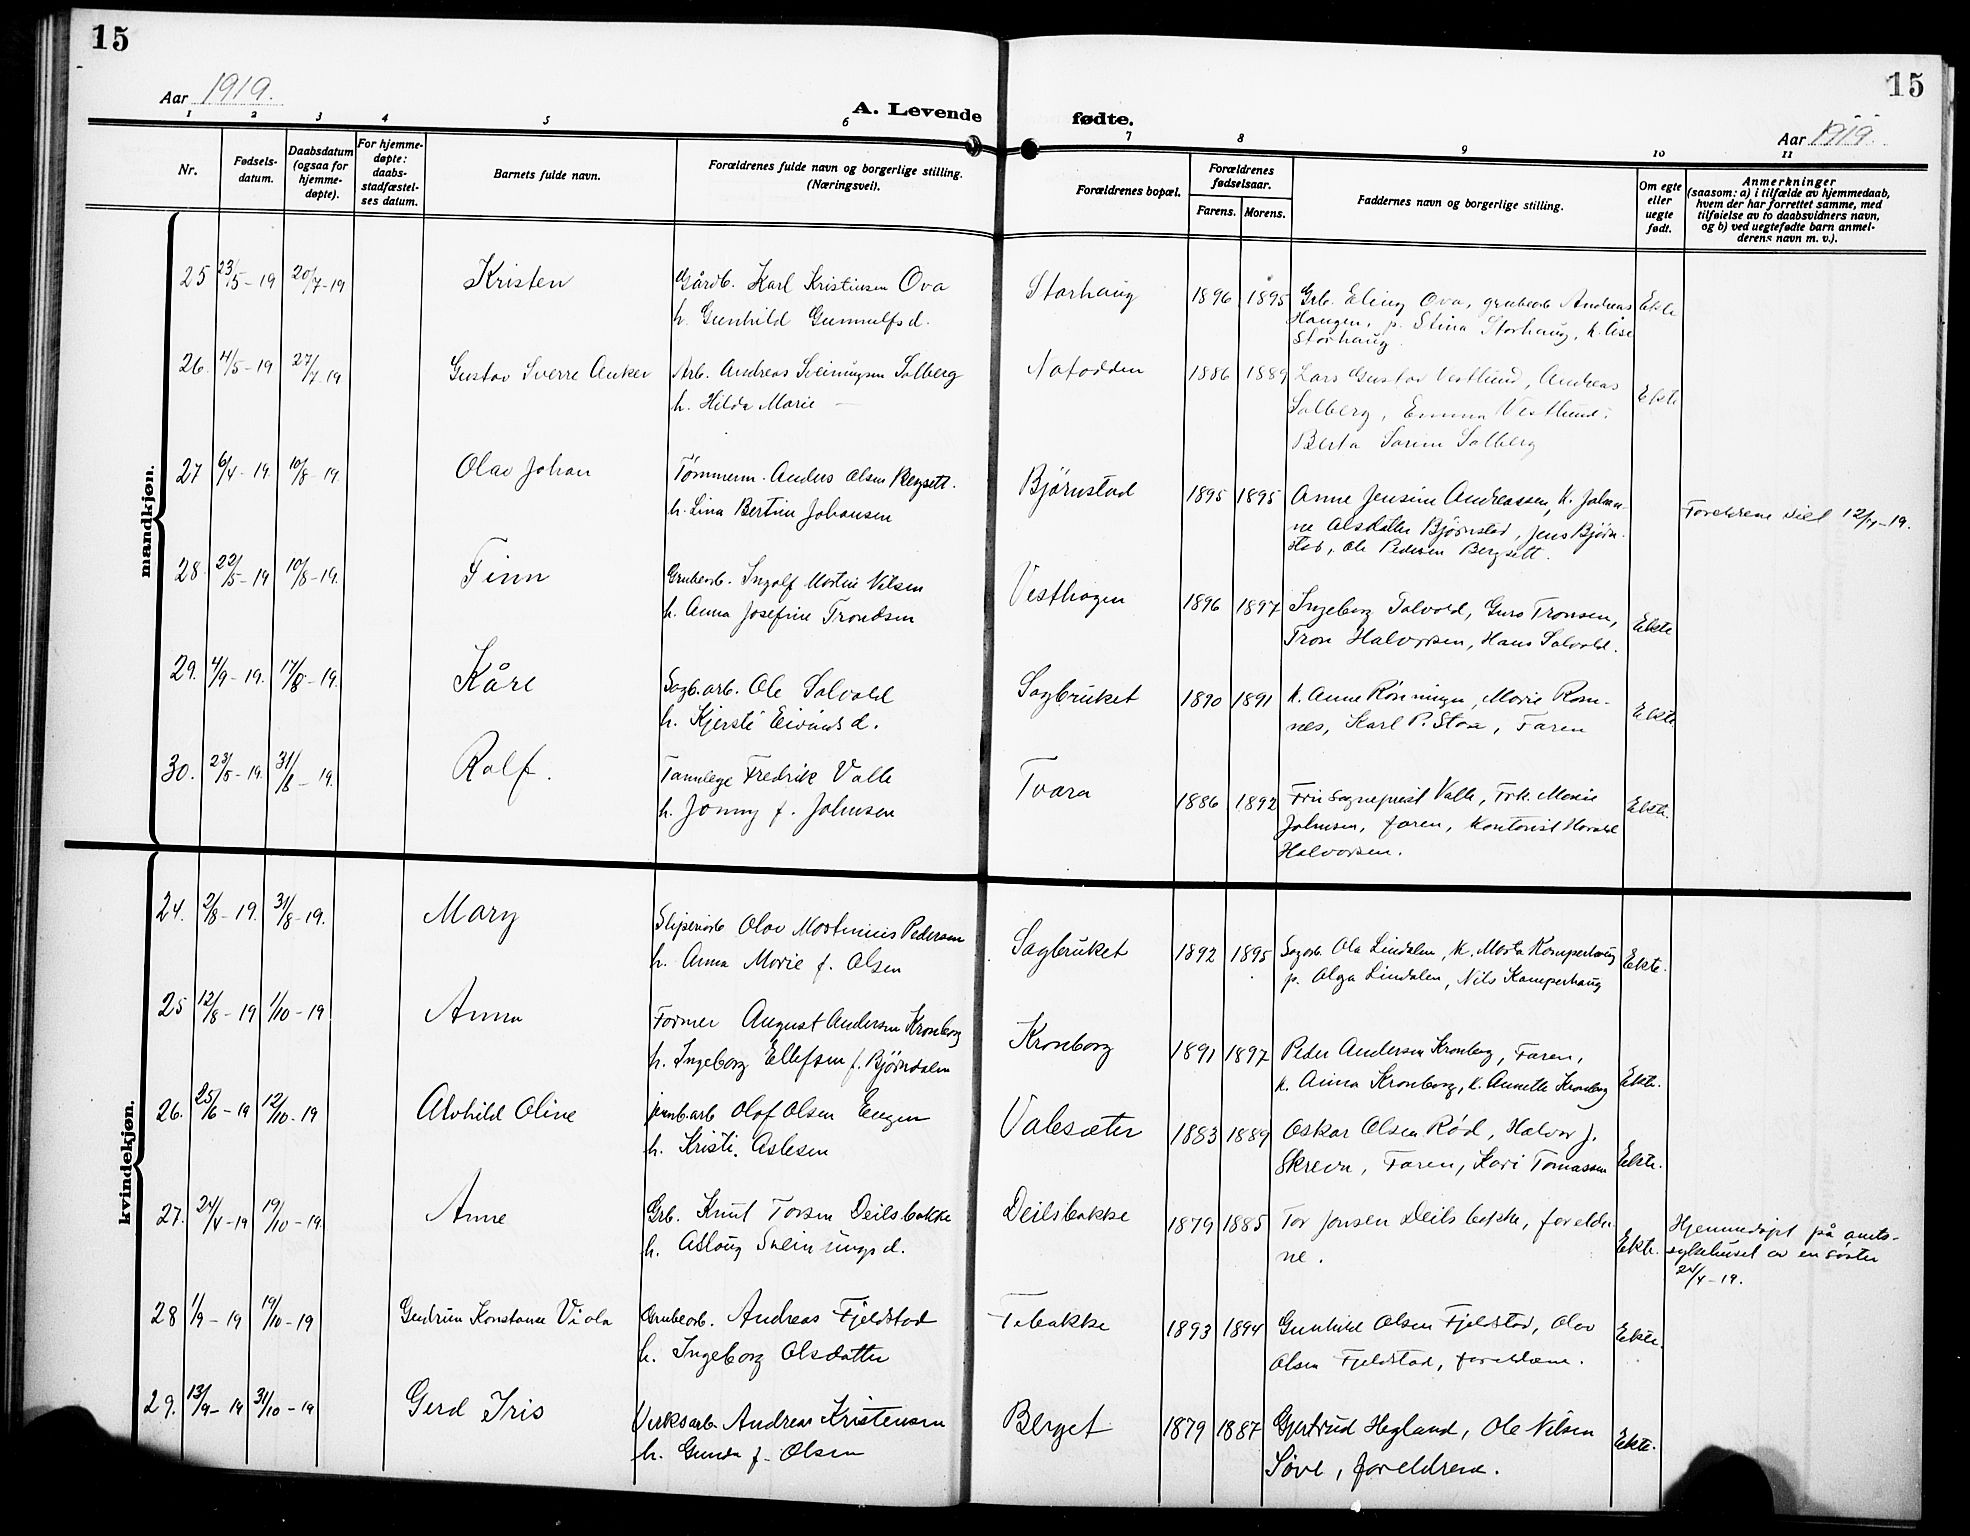 15
15
Aar 1919.
A. Levende fødte.
Aar 1919.
1 2 3 4 5 6 7 8 9 10 11
Nr.
Fødsels-
datum.
Daabsdatum
(ogsaa for
hjemme-
døpte).
For hjemme-
døpte:
daabs-
stadfæstel-
ses datum.
Barnets fulde navn.
Forældrenes fulde navn og borgerlige stilling.
(Næringsvei).
Forældrenes bopæl.
Forældrenes
fødselsaar.
Farens. Morens.
Faddernes navn og borgerlige stilling.
Om egte
eller
uegte
født.
Anmerkninger
(saasom: a) i tilfælde av hjemmedaab,
hvem der har forrettet samme, med
tilføielse av to daabsvidners navn,
og b) ved uegtefødte barn anmel-
derens navn m. v.).
mandkjøn.
25 23/5-19 20/7-19 Kristen Gårdb. Karl Kristiansen Ova Storhaug 1896 1895 Grb. Eling Ova, grubearb Andreas Ekte
h. Gunhild Gunnulfsd. Haugen, p. Stina Storhaug, k. Åse
Storhaug
26. 4/5-19 27/7-19 Gustav Sverre Anker Arb. Andreas Sveinungsen Solberg Notodden 1886 1889 Lars Gustav Vestlund, Andreas Ekte
h. Hilda Marie — Solberg, Emma Vestlund,
Berta Sorine Solberg
27 6/4-19 10/8-19. Olav Johan Tømmerm. Anders Olsen Bergsett. Bjørnstad 1895 1895 Anne Jensine Andreassen, k. Johan-
h. Lina Bertine Johansen ne Olsdatter Bjørnstad, Jens Bjørn-
stad, Ole Pedersen Bergsett.
Foreldrene viet 12/4-19.
28. 22/5-19 10/8-19. Finn Grubearb. Ingolf Martin Nilsen Vesthagen 1896 1897 Ingeborg Solvold, Guro Tronsen, Ekte
h. Anna Josefine Trondsen Tron Halvorsen, Hans Solvold.
29. 4/9-19. 17/8-19. Kåre Sagb.arb. Ole Solvold Sagbruket 1890 1891 k. Anne Rønningen, Marie Rom- Ekte
h. Kjersti Eivindsd. nes, Karl P. Stoa, Faren
30. 23/5-19. 31/8-19. Rolf. Tannlege Fredrik Valle Tvara 1886 1892 Fru Sogneprest Valle, Frk. Marie Ekte.
h. Jonny f. Johnsen Johnsen, faren, Kontorist Harald
Halvorsen.
kvindekjøn.
24. 2/8-19. 31/8-19. Mary Sliperiarb Olav Martinius Pedersen Sagbruket 1892 1895 Sagarb. Ola Lindalen, k. Marta Kamperhaug Ekte.
h. Anna Marie f. Olsen p. Olga Lindalen, Nils Kamperhaug
25 12/8-19 1/10-19 Anna Former August Andersen Kronborg Kronborg 1891 1897 Peder Andersen Kronborg, Faren, Ekte.
h. Ingeborg Ellefsen f. Bjørndalen k. Anna Kronborg, k. Annette Kronborg
26. 25/6-19 12/10-19 Alvhild Oline Jernb.arb Olof Olsen Engen Valesæter 1883 1889 Oskar Olsen Rød, Halvor J. Ekte.
h. Kristi. Aslesen Skreva, Faren, Kari Tomassen
27. 24/4-19 19/10-19. Anne Grb. Knut Torsen Deilsbakke Deilsbakke 1879 1885 Tor Jonsen Deilsbakke, foreldre- Ekte.
h. Aslaug Sveinungsd. ne.
Hjemmedøpt på amts-
sykehuset av en søster
24/4-19.
28 1/9-19 19/10-19 Gudrun Konstanse Viola Grubearb. Andreas Fjeldstad Tobakke 1893 1894 Gunhild Olsen Fjeldstad, Olav Ekte.
h. Ingeborg Olsdatter Olsen Fjeldstad, foreldrene.
29. 13/9-19 31/10-19 Gerd Iris Verksarb. Andreas Kristensen Berget 1879 1887 Gjertrud Hegland, Ole Nilsen Ekte.
h. Gunda f. Olsen Søve, foreldrene.